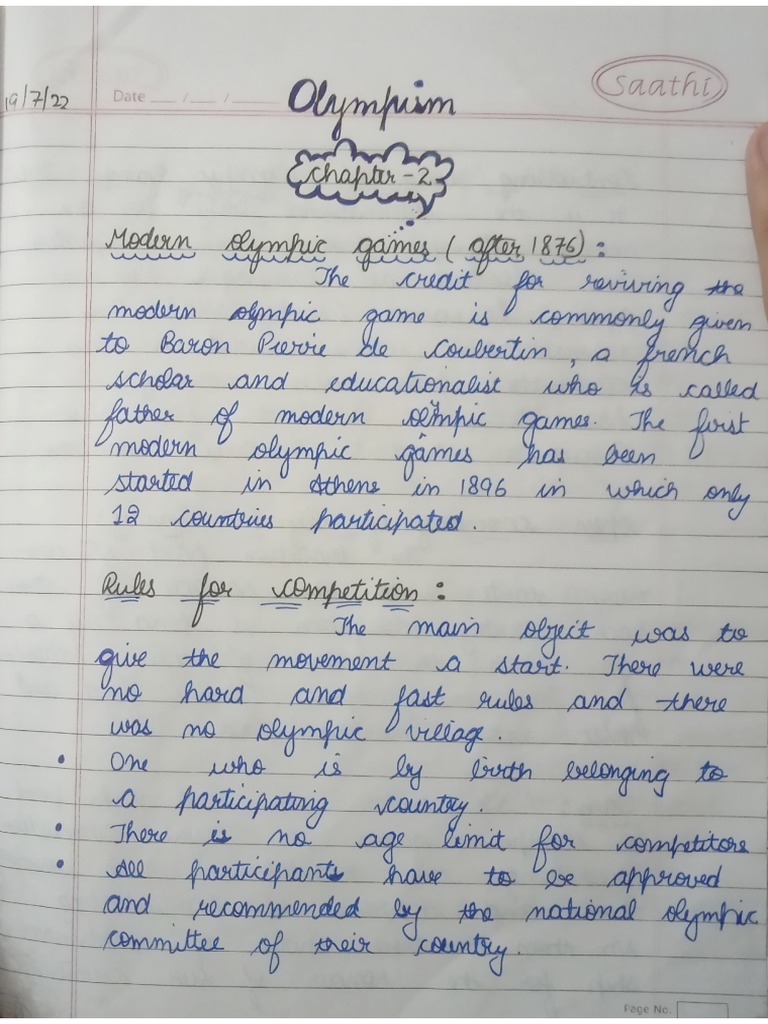 19/7/22 Date __/__/__ Olympism Saathi
Chapter-2
Modern olympic games (after 1876):
The credit for reviving the
modern olympic game is commonly given
to Baron Pierrie de Coubertin, a french
scholar and educationalist who is called
father of modern olympic games. The first
modern olympic games has been
started in Athens in 1896 in which only
12 countries participated.
Rules for competition:
The main object was to
give the movement a start. There were
no hard and fast rules and there
was no olympic village.
• One who is by birth belonging to
a participating country.
• There is no age limit for competitors
• All participants have to be approved
and recommended by the national olympic
committee of their country.
Page No.